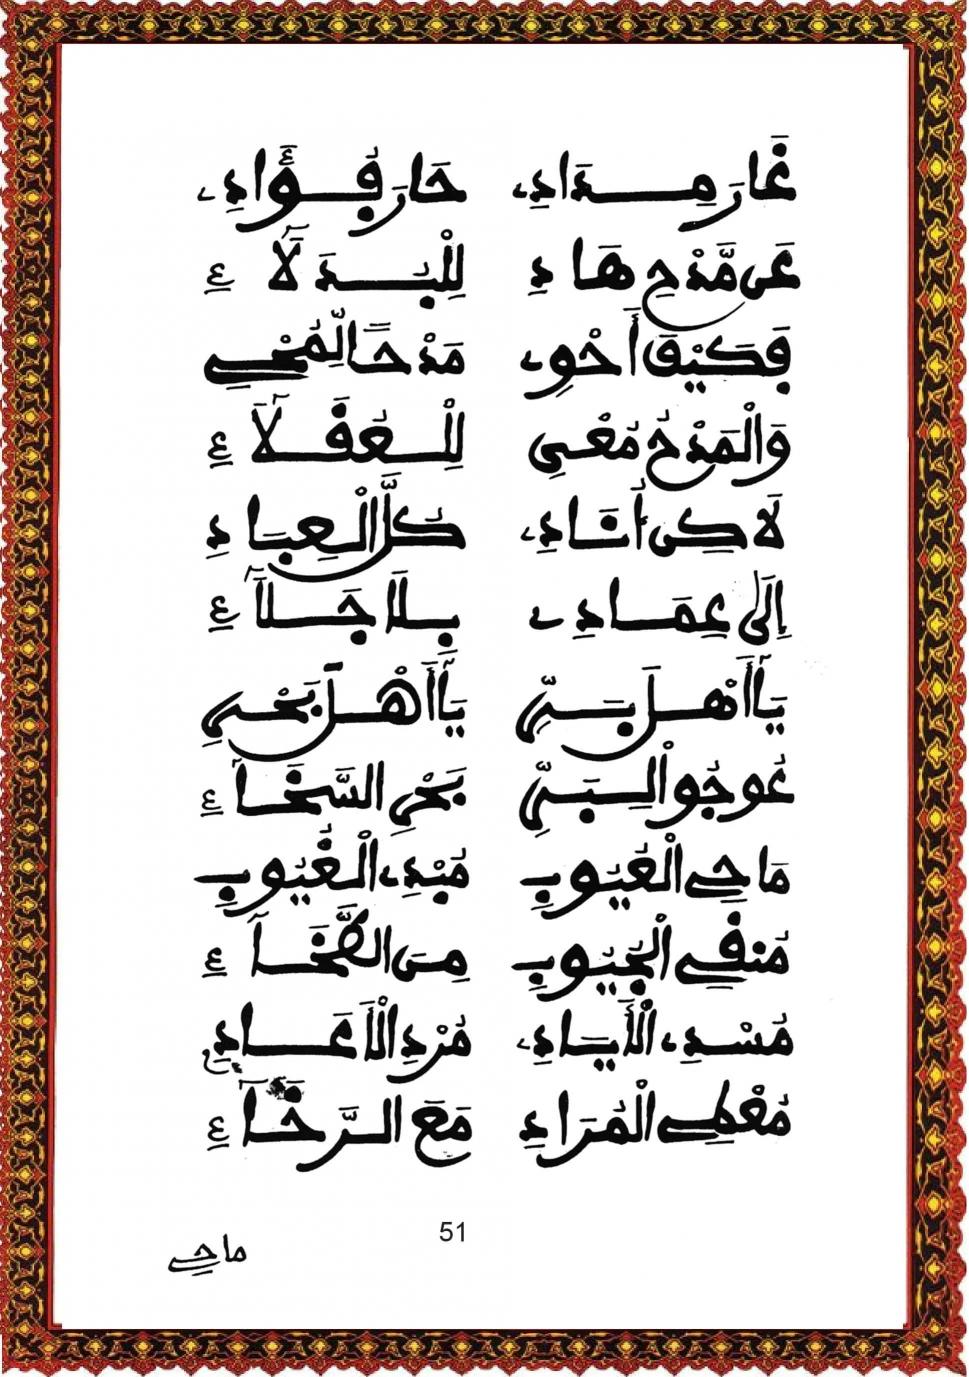 غَارَ مِدَادِے حَارَ فُؤَادِے
عَن مَّدْحِ هَادٍ لِلْبُدَلَآءِ
فَكَيْفَ أَحْوِے مَدْحًا لِّمُحْيٍ
وَالْمَدْحُ مُعْيٍ لِلْعُقَلَآءِ
لَاكِنْ أُنَادِے كُلَّ الْعِبَادِ
إِلَى عِمَادِے بِلَا جَلَآءِ
يَا أَهْلَ بَرٍّ يَا أَهْلَ بَحْرٍ
عُوجُوا لِبَرٍّ بَحْرِ السَّخَآءِ
مَاحِے الْعُيُوبِ مُبْدِے الْغُيُوبِ
مُنقِے الْجُيُوبِ مِنَ الطَّخَآءِ
مُسْدِے الْأَيَادِے مُرْدِ الْأَعَادِے
مُعْطِے الْمُرَادِ مَعَ الرَّخَآءِ
51
ماحِے